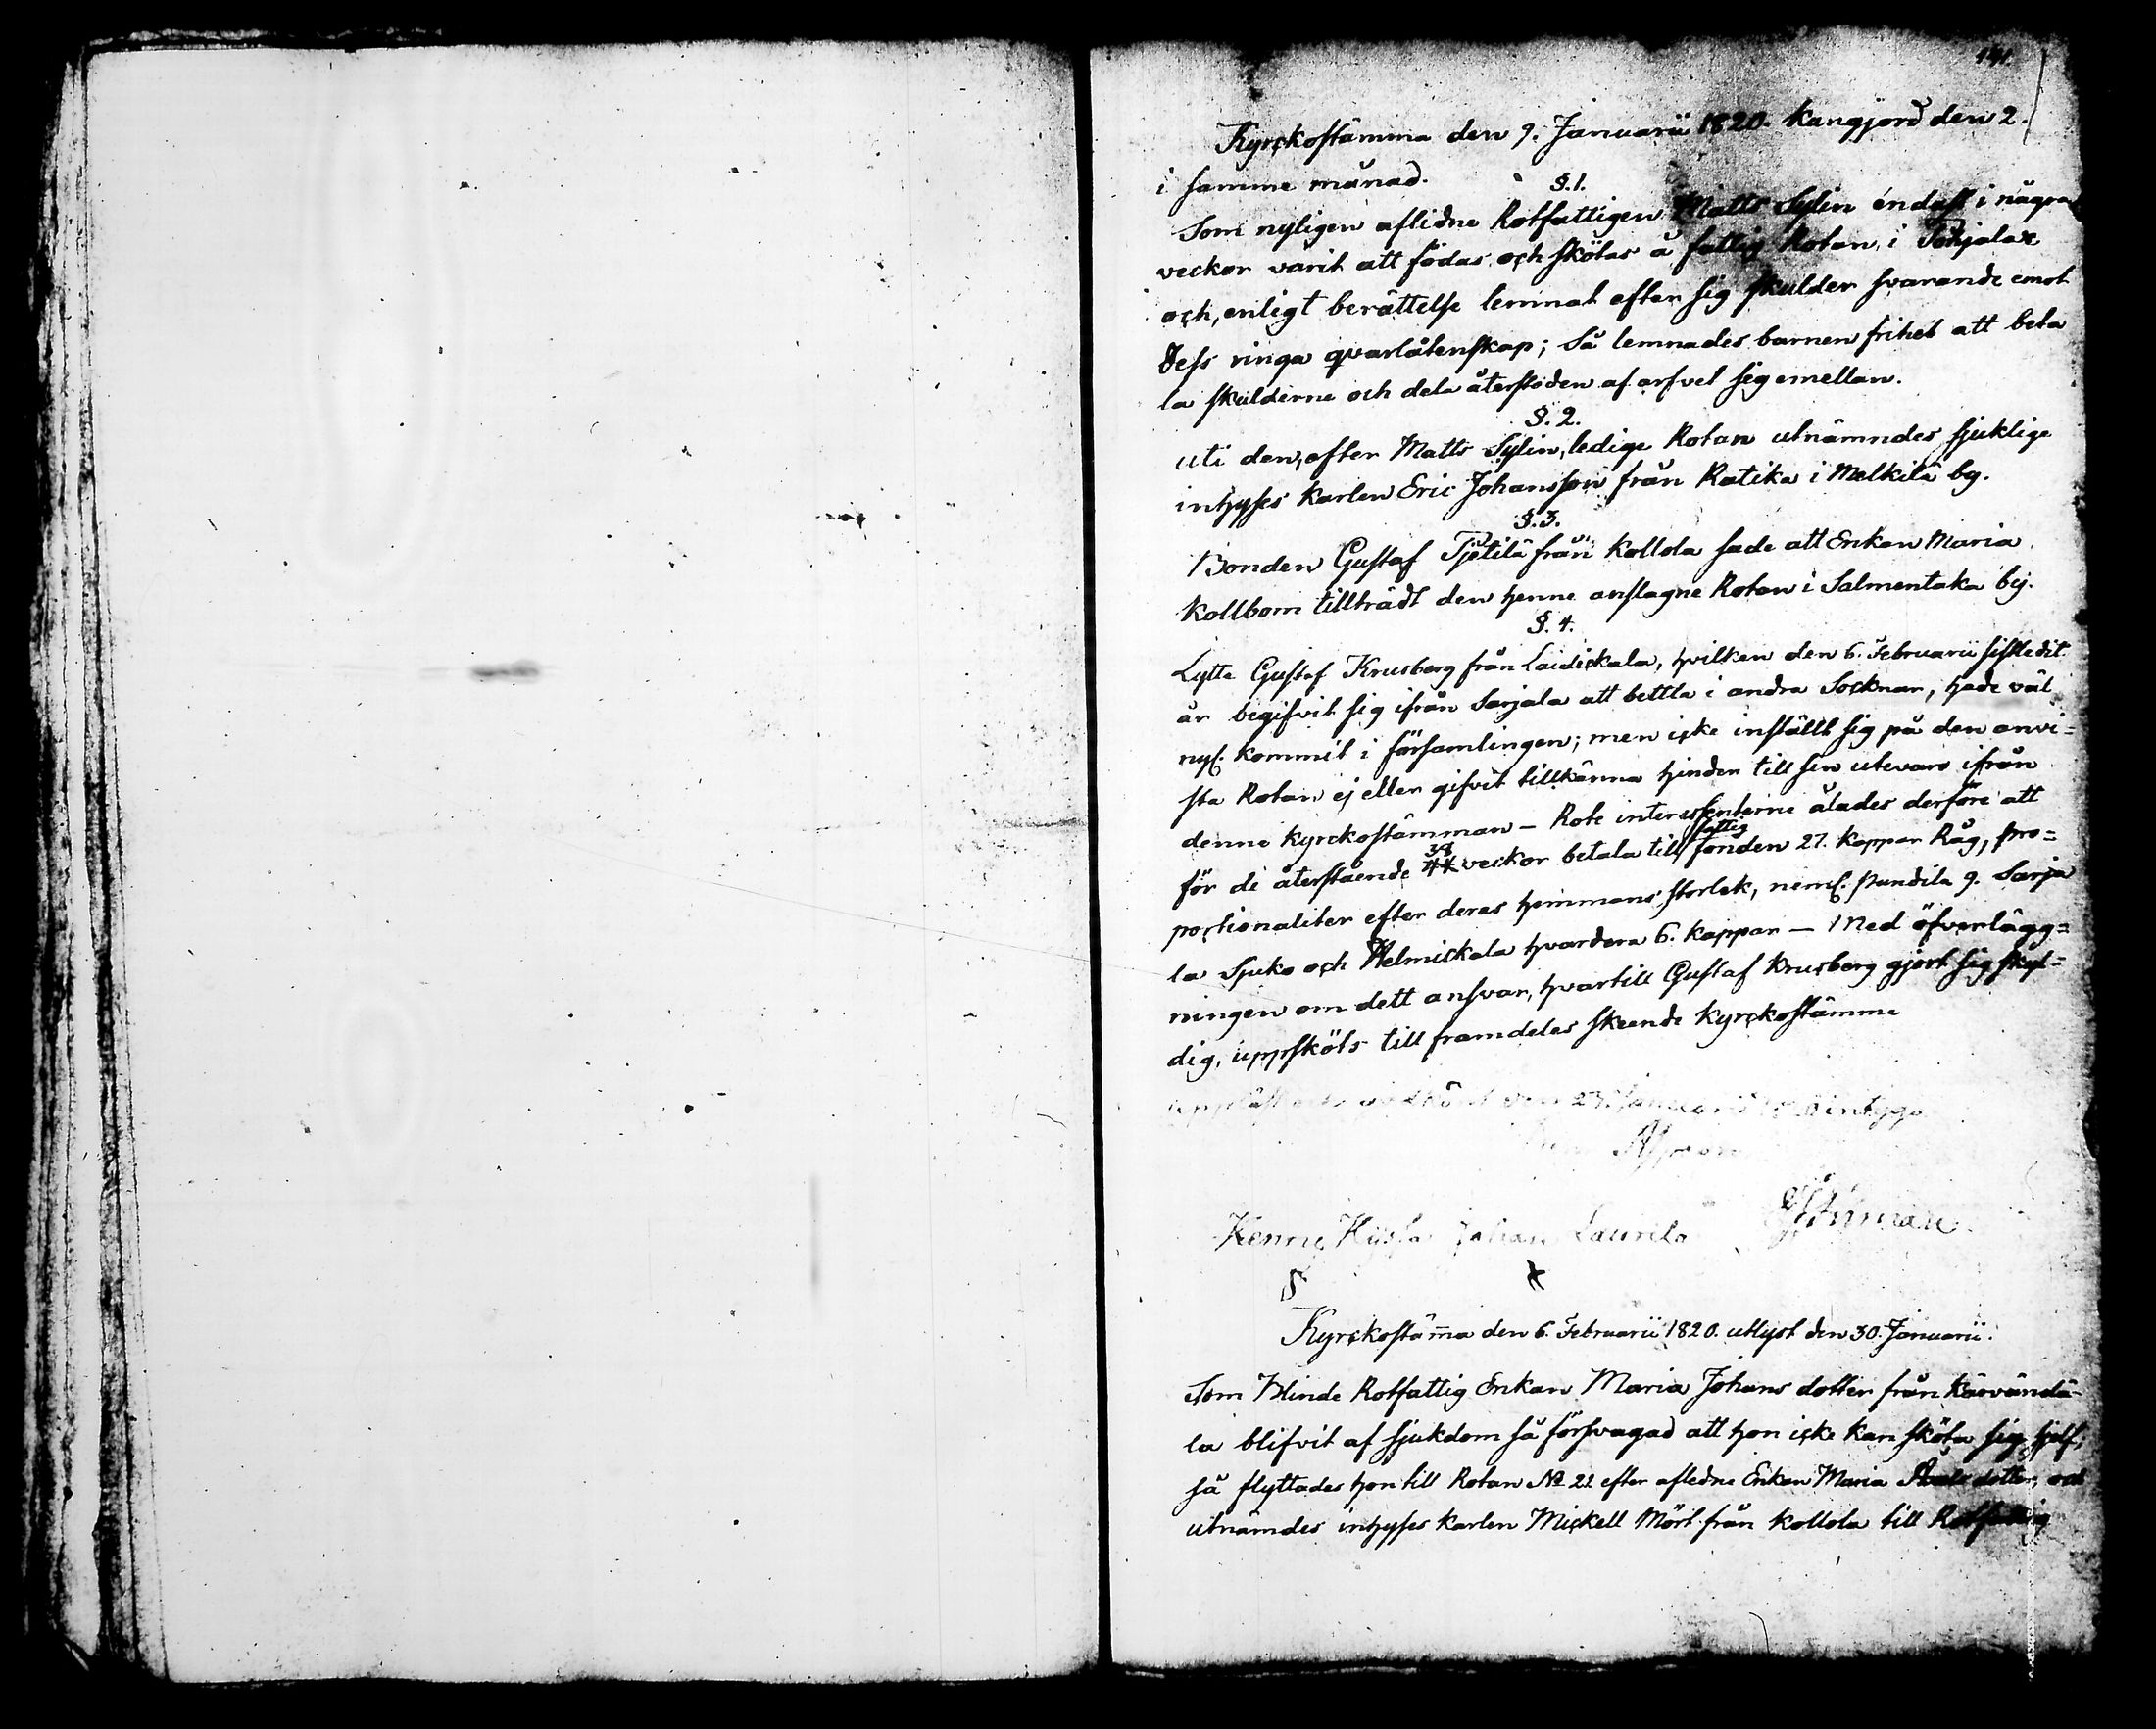 141.
Kyrckostämma den 9. Januarii 1820. kungjord den 2.
i samme månad.
§. 1.
Som nyligen aflidne Rotfattigen Matts Sylin endast i några
veckor varit att födas och skötas å fattig Rotan i
och, enligt berättelse lemnat efter sig skulder svarande emot
dess ringa qvarlåtenskap; Så lemnades barnen frihet att beta
la skulderne och dela återstoden af arfvet sig emellan.
§. 2.
uti den, efter Matts Sylin, ledige Rotan utnämndes sjuklige
inhyses karlen Eric Johansson från Ratika i Melkilä by.
§. 3.
Bonden Gustaf Tjetilä från Kollola sade att Enkan Maria
Kollbom tillträdt den henne anslagne Rotan i Salmentaka by.
§. 4.
Lytte Gustaf Krusberg från Laidickala, hvilken den 6. Februarii sistledit.
år begifvit sig ifrån Sarjala att bettla i andra Socknar, hade väl
nyl. kommit i församlingen; men icke inställt sig på den anvi=
sta Rotan, ej eller gifvit tillkänna hinder till sin utevaro ifrån
denne kyrckostämman – Rote interessenterne ålades derföre att
för de återstående 38 veckor betala till fattig fonden 27. kappar Råg, pro=
portionaliter efter deras hemmans storlek, neml. Pundila 9. Sarja
la Sjuko och Helmickala hvardera 6. kappar – Med öfverlägg=
ningen om dett ansvar, hvartill Gustaf Krusberg gjort sig skyl=
dig, uppsköts till framdeles skeende kyrckostämma
den 23. Januarii intyga
Johan Laurila
Kyrckostäm̄a den 6. Februarii 1820. utlyst den 30. Januarii.
Som Blinde Rotfattig Enkan Maria Johans dotter från Kärvändä
la blifvit af sjukdom så försvagad att hon icke kan sköta sig sjelf,
så flyttades hon till Rotan No 22 efter afledne Enkan Maria dotter, och
utnämdes inhyses karlen Mickell Mört från Kollola till Rotfattig